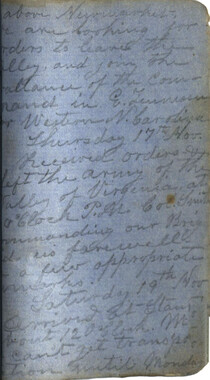 above Newmarket
are looking for
orders to leave the
alley and join the
mittance of the Com
mand in E. Tennessee
or Western N. Carolina
Thursday 17th Nov.
Received orders
left the army of the
alley of Virginia at
o Clock P.M. Col. Smith
ommanding our Brig
us farewell
a few appropriate
remarks.
Saturday 19th Nov
arrived at Staun
about 12 O clock M.
cant get transpor
tion until Monday